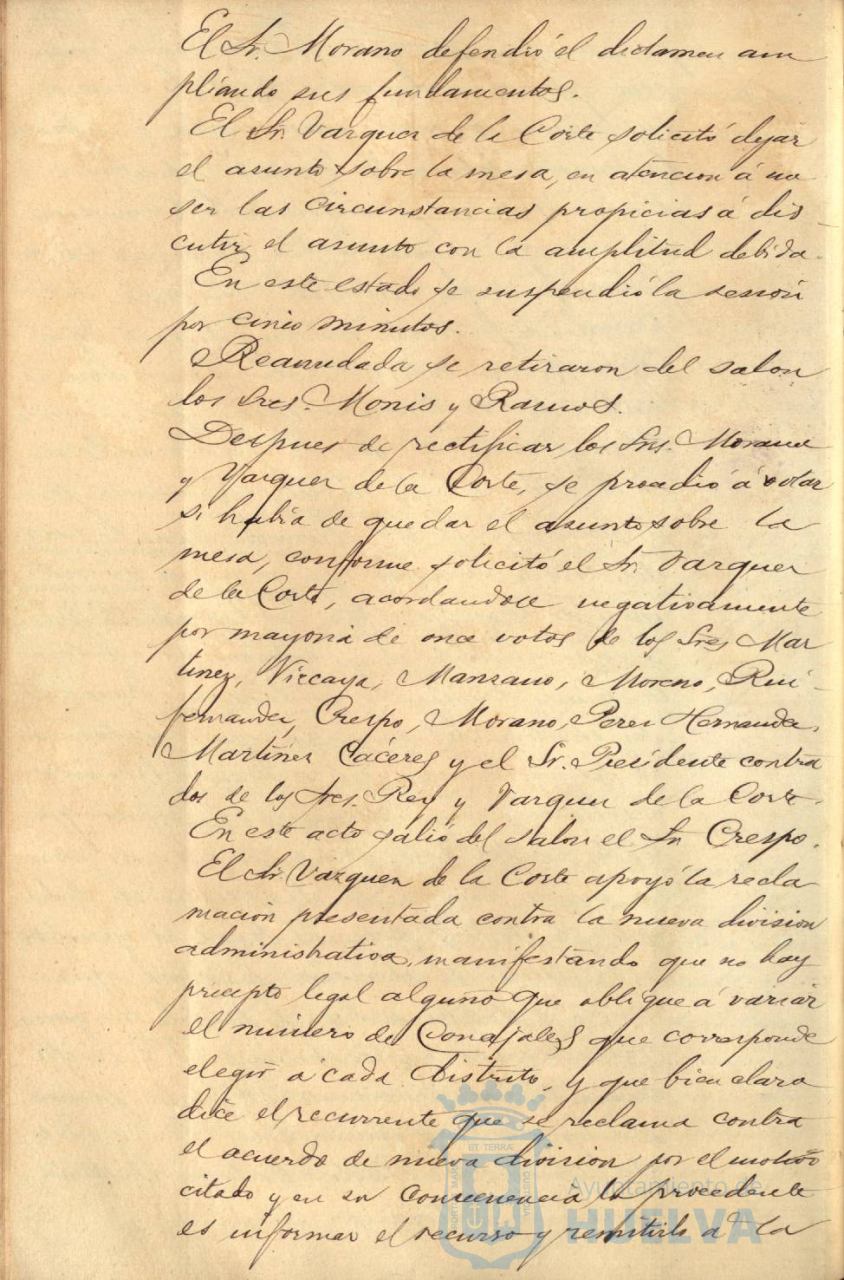 El Sr. Morano defendió el dictamen am
pliando sus fundamentos.
El Sr. Vazquez de la Corte solicitó dejar
el asunto sobre la mesa, en atencion á no
ser las circunstancias propicias á dis
cutir el asunto con la amplitud debida.
En este estado se suspendió la sesión
por cinco minutos.
Reanudada se retiraron del salon
los Sres. Monis y Ramos.
Despues de rectificar los Sres. Morano
y Vazquez de la Corte, se procedió á votar
si habia de quedar el asunto sobre la
mesa, conforme solicitó el Sr. Vazquez
de la Corte, acordandose negativamente
por mayoria de once votos de los Sres Mar
tinez, Vizcaya, Manzano, Moreno, Rui-
fernandez, Crespo, Morano, Perez Hernandez,
Martinez Cáceres y el Sr. Presidente contra
dos de los Sres. Rey y Vazquez de la Corte.
En este acto salió del salon el Sr. Crespo.
El Sr. Vazquez de la Corte apoyó la recla
mación presentada contra la nueva division
administrativa, manifestando que no hay
precepto legal alguno que obligue á variar
el número de Concejales que corresponde
elegir á cada Distrito, y que bien claro
dice el recurrente que se reclama contra
el acuerdo de nueva division por el motivo
citado y en su consecuencia lo procedente
es informar el recurso y remitirlo á la
Ayuntamiento de
HUELVA